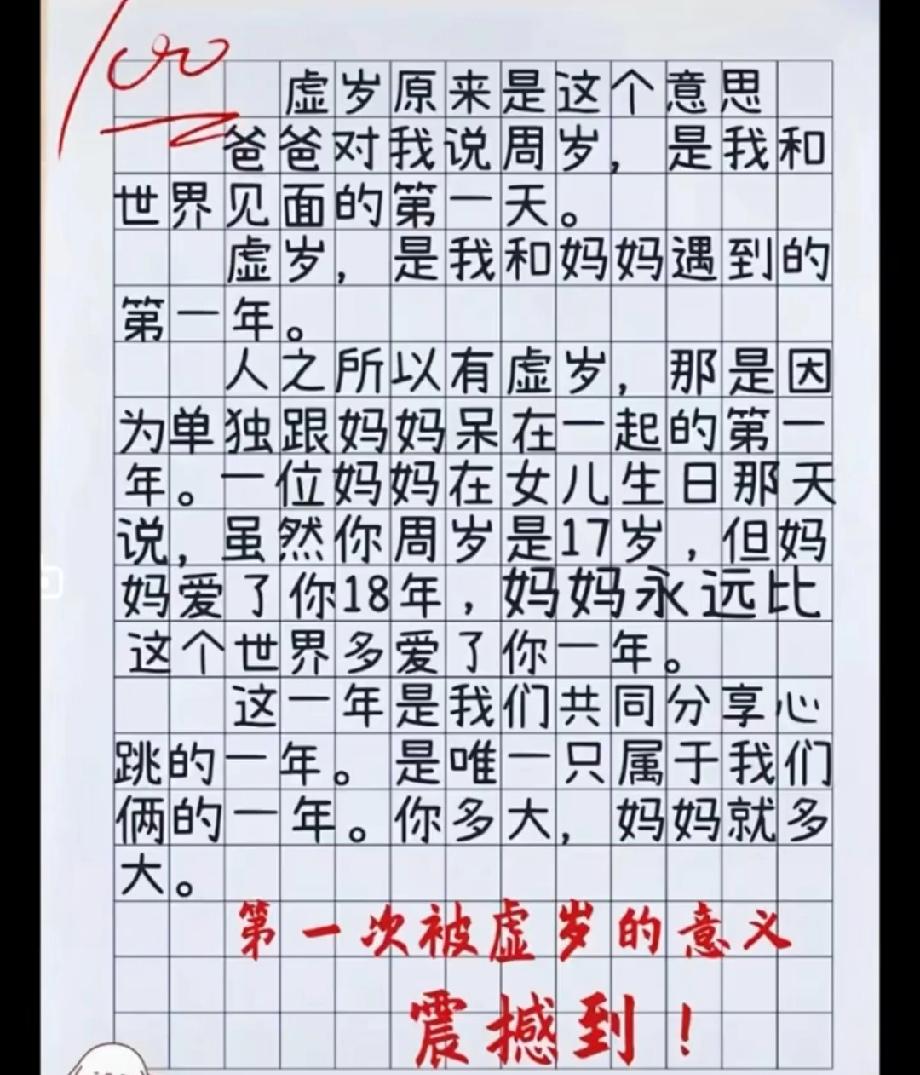 100
虚岁原来是这个意思
爸爸对我说周岁，是我和
世界见面的第一天。
虚岁，是我和妈妈遇到的
第一年。
人之所以有虚岁，那是因
为单独跟妈妈呆在一起的第一
年。一位妈妈在女儿生日那天
说，虽然你周岁是17岁，但妈
妈爱了你18年，妈妈永远比
这个世界多爱了你一年。
这一年是我们共同分享心
跳的一年。是唯一只属于我们
俩的一年。你多大，妈妈就多
大。
第一次被虚岁的意义
震撼到！